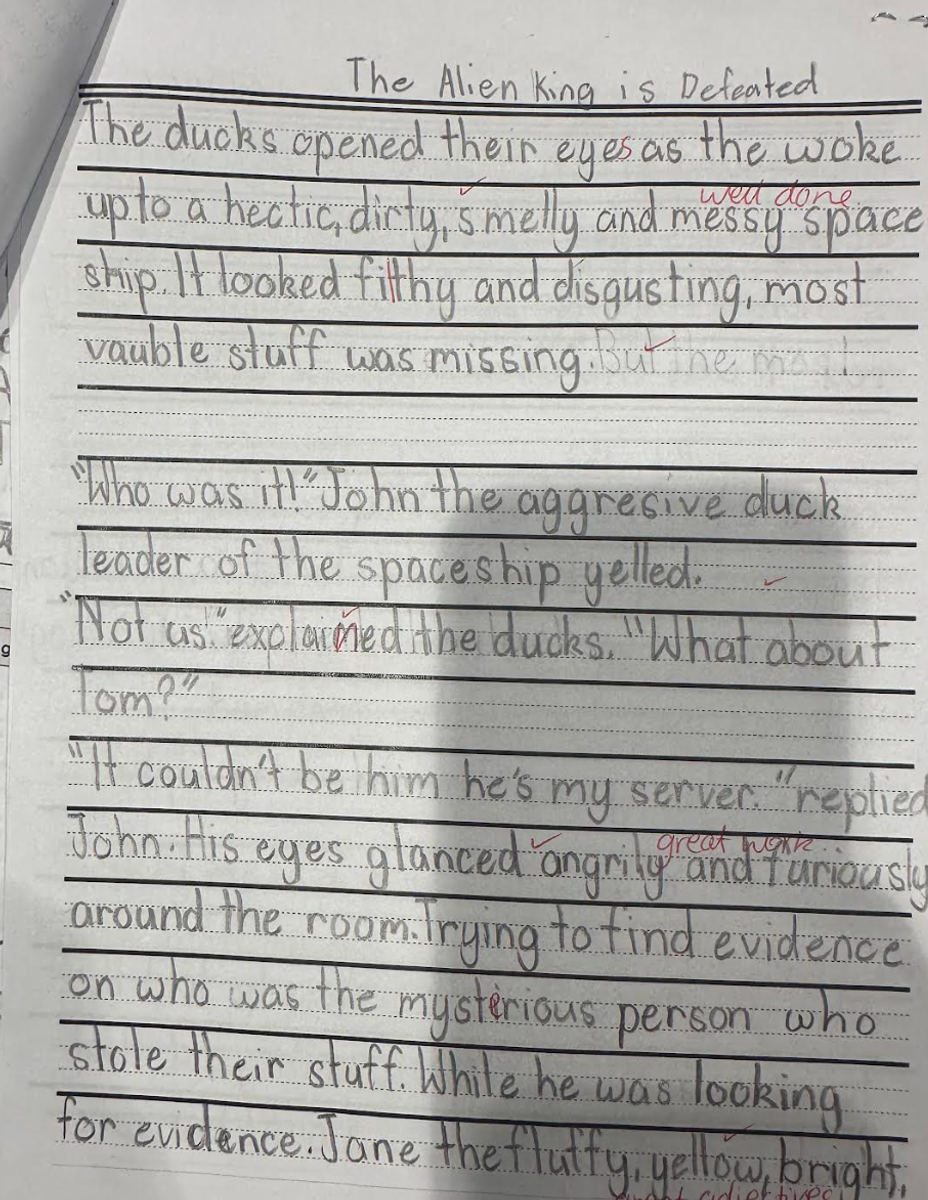 The Alien King is Defeated
The ducks opened their eyes as the woke
well done
up to a hectic, dirty, smelly and messy space
ship. It looked filthy and disgusting, most
vauble stuff was missing. But the most
"Who was it!" John the aggresive duck
leader of the spaceship yelled.
"Not us" explained the ducks. "What about
Tom?"
"It couldn't be him he's my server." replied
great work
John. His eyes glanced angrily and furiously
around the room. Trying to find evidence
on who was the mysterious person who
stole their stuff. While he was looking
for evidence. Jane the fluffy, yellow, bright,
adjectives